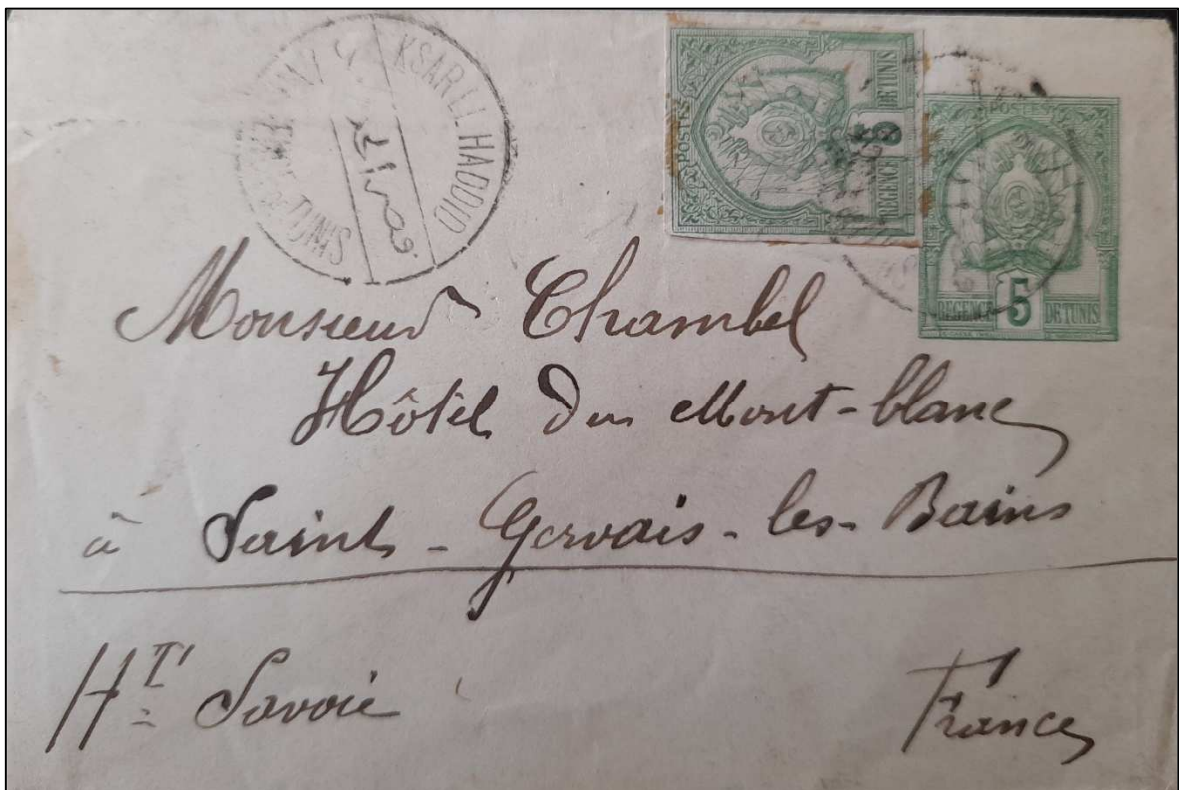 KSAR EL HADDID
DE TUNIS
POSTES
REGENCE DE TUNIS
POSTES
5
REGENCE DE TUNIS
Monsieur Chambel
Hôtel Du Mont-blanc
à Saint-Gervais-les-Bains
Hte Savoie
France